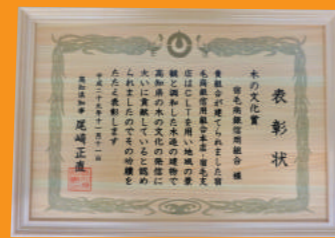 表彰状
木の文化賞
宿毛商銀信用組合 様
貴組合が建てられました宿
毛商銀信用組合本店・宿毛支
店はCLTを用い地域の景
観と調和した木造の建物で
高知県の木の文化の発信に
大いに貢献していると認め
られましたのでその功績を
たたえ表彰します
平成二十九年十一月十一日
高知県知事 尾﨑正直